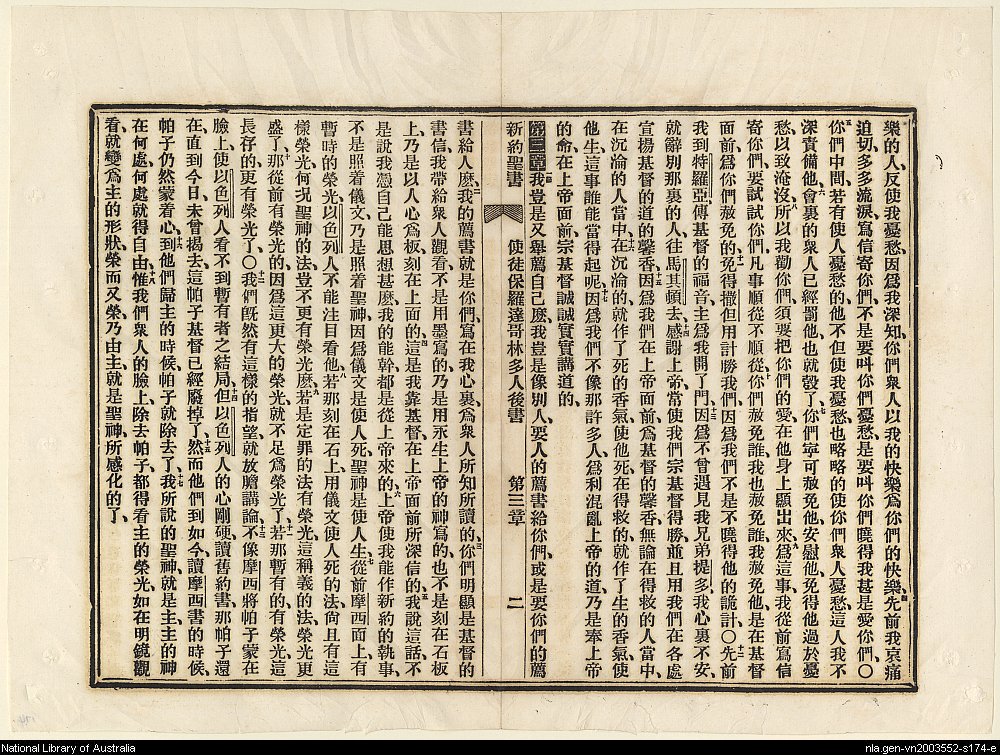 樂的人、反使我憂愁、因爲我深知、你們衆人以我的快樂、爲你們的快樂、先前我哀痛
迫切、多多流淚、寫信寄你們、不是要叫你們憂愁、是要叫你們曉得我甚是愛你們、〇
你們中間、若有使人憂愁的、他不但使我憂愁、也略略的使你們衆人憂愁、這人我不
深責備他、會裏的衆人已經罰他、也就彀了、你們寧可赦免他、安慰他、免得他過於憂
愁、以致淹沒、所以我勸你們、須要把你們的愛、在他身上顯出來、爲這事、我從前寫信
寄你們、要試試你們、凡事順從不順從、你們赦免誰、我也赦免誰、我赦免他、是在基督
面前、爲你們赦免的、免得撒但用計勝我們、因爲我們不是不曉得他的詭計、〇先前
我到特羅亞、傳基督的福音、主爲我開了門、因爲不曾遇見我兄弟提多、我心裏不安、
就辭別那裏的人、往馬其頓去、感謝上帝、常使我們宗基督得勝、並且用我們在各處
宣揚基督的道的馨香、因爲我們在上帝面前、爲基督的馨香、無論在得救的人當中、
在沉淪的人當中、在沉淪的、就作了死的香氣、使他死、在得救的、就作了生的香氣、使
他生、這事誰能當得起呢、因爲我們不像那許多人、爲利混亂上帝的道、乃是奉上帝
的命、在上帝面前、宗基督誠誠實實講道的、
第三章 我豈是又舉薦自己麽、我豈是像別人、要人的薦書給你們、或是要你們的薦
新約聖書 使徒保羅達哥林多人後書 第三章 二
書給人麽、我的薦書就是你們、寫在我心裏、爲衆人所知所讀的、你們明顯是基督的
書信、我帶給衆人觀看、不是用墨寫的、乃是用永生上帝的神寫的、也不是刻在石板
上、乃是以人心爲板、刻在上面的、這是我靠基督在上帝面前所深信的、我說這話、不
是說我憑自己能思想甚麽、我的能幹、都是從上帝來的、上帝使我能作新約的執事、
不是照着儀文、乃是照着聖神、因爲儀文是使人死、聖神是使人生、從前摩西面上、有
暫時的榮光、以色列人不能注目看他、若那刻在石上、用儀文使人死的法、尙且有這
樣榮光、何况聖神的法、豈不更有榮光麽、若是定罪的法有榮光、這稱義的法、榮光更
盛了、那從前有榮光的、因爲這更大的榮光、就不足爲榮光了、若那暫有的、有榮光、這
長存的、更有榮光了、〇我們旣然有這樣的指望、就放膽講論、不像摩西將帕子蒙在
臉上、使以色列人看不到暫有者之結局、但以色列人的心剛硬、讀舊約書、那帕子還
在、直到今日、未曾揭去、這帕子基督已經廢掉了、然而他們到如今讀摩西書的時候、
帕子仍然蒙着心、到他們歸主的時候、帕子就除去了、我所說的聖神、就是主、主的神
在何處、何處就得自由、惟我們衆人的臉上、除去帕子、都得看主的榮光、如在明鏡觀
看、就變爲主的形狀、榮而又榮、乃由主、就是聖神、所感化的了、
National Library of Australia
nla.gen-vn2003552-s174-e